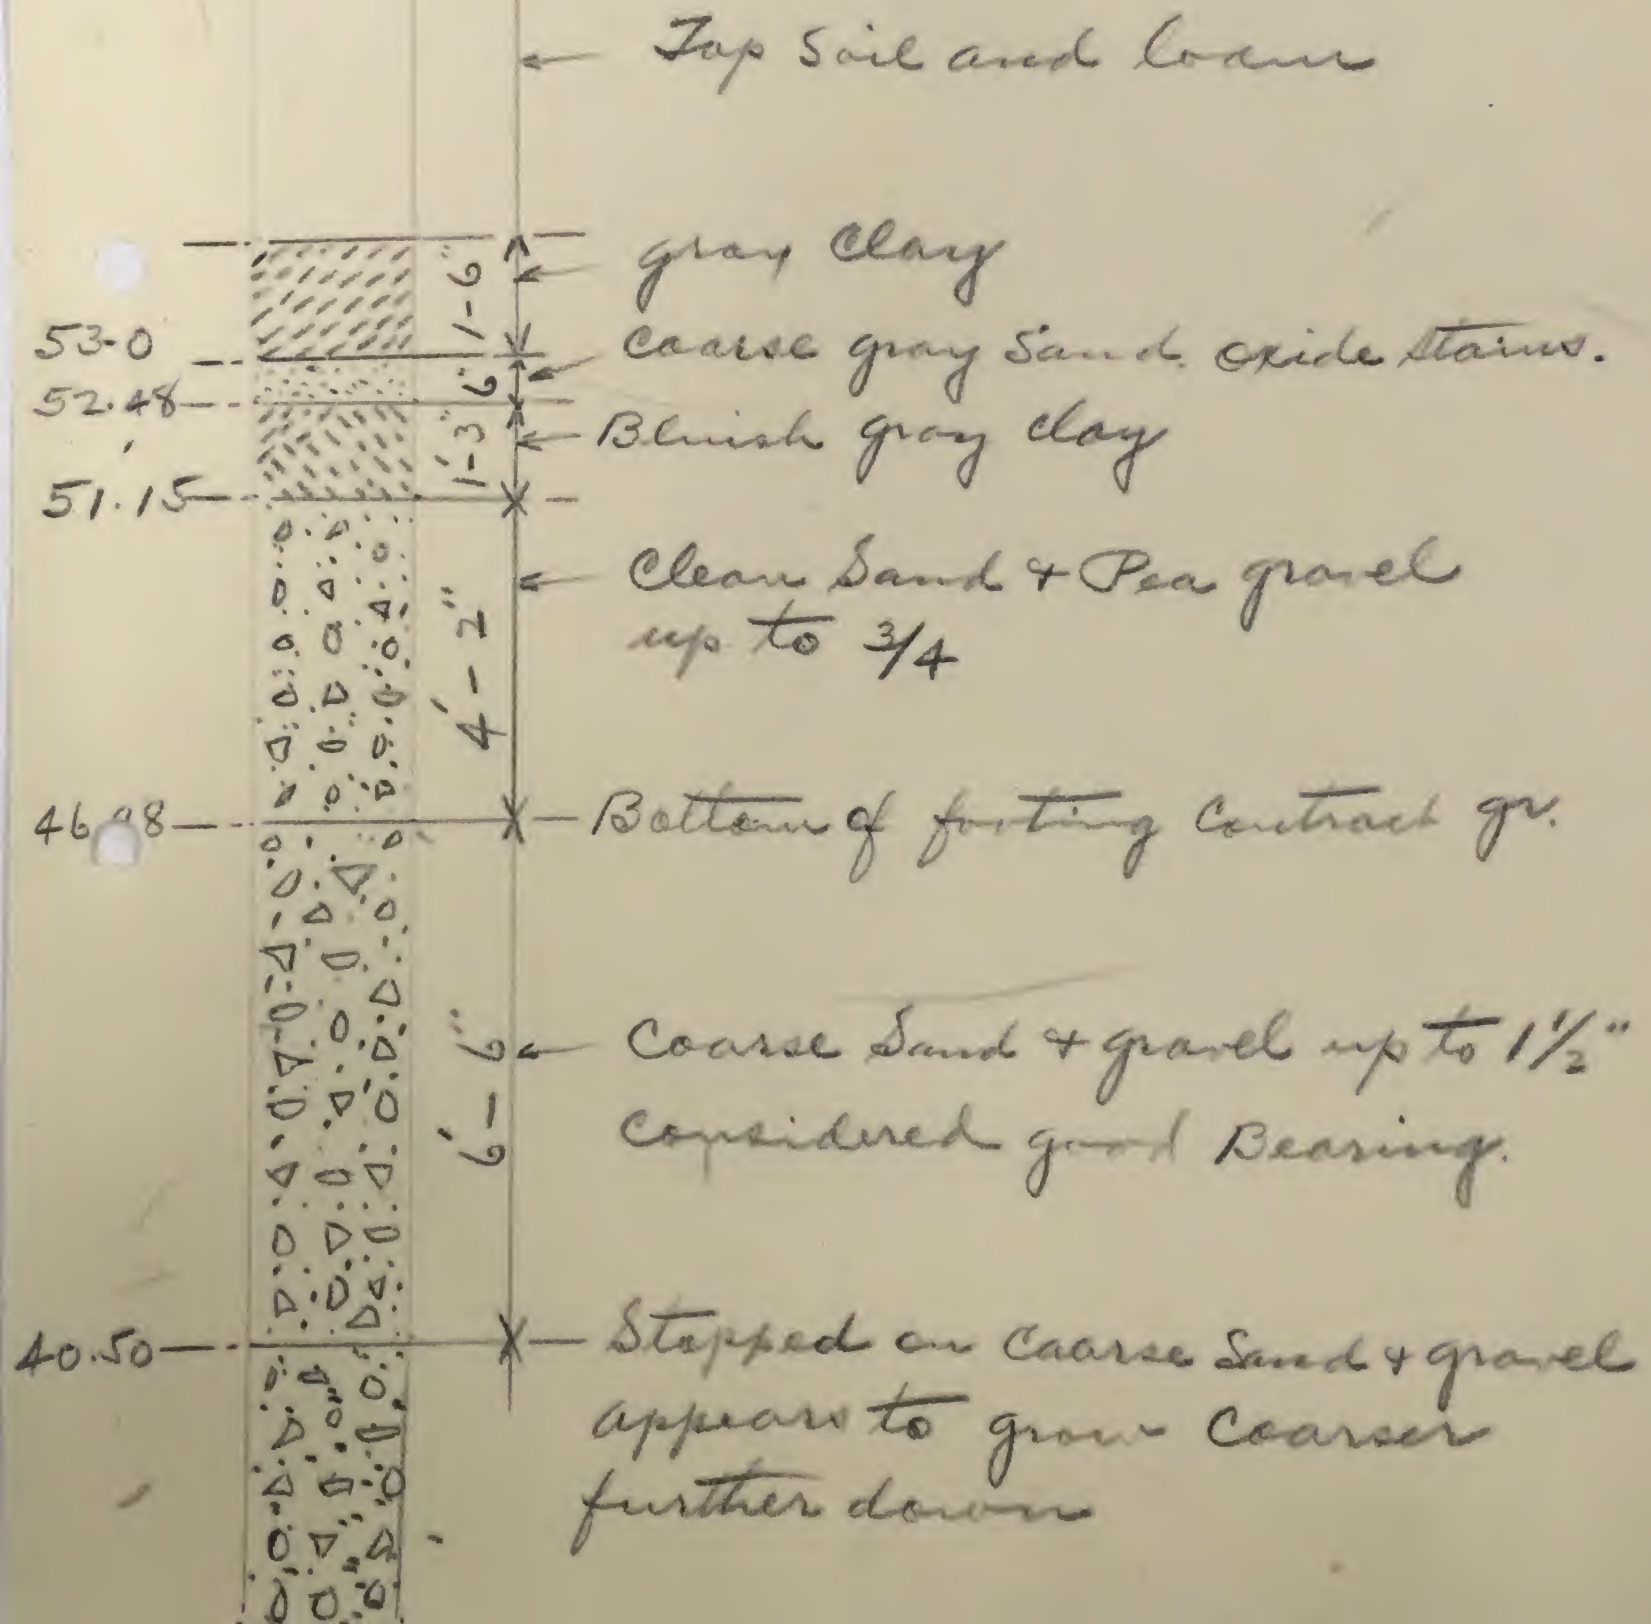 Top Soil and loam
gray Clay
1'-6"
53.0
Coarse gray Sand. oxide stains.
6"
52.48
Bluish gray clay
1'-3"
51.15
Clean Sand & Pea gravel
up to 3/4
4'-2"
Bottom of footing Contract gr.
Coarse Sand & gravel up to 1 1/2"
6'-6"
Considered good Bearing.
40.50
Stopped on Coarse Sand & gravel
appears to grow Coarser
further down